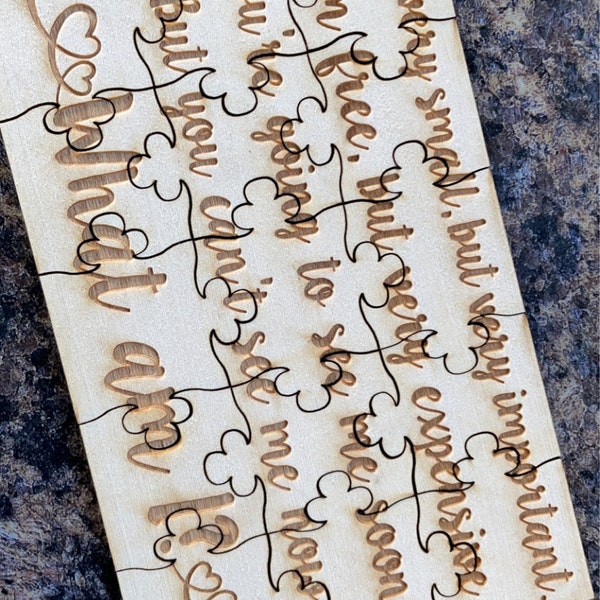 very small, but very important.
free, but very expensive
you're going to see me soon
but you can't see me
What am I?